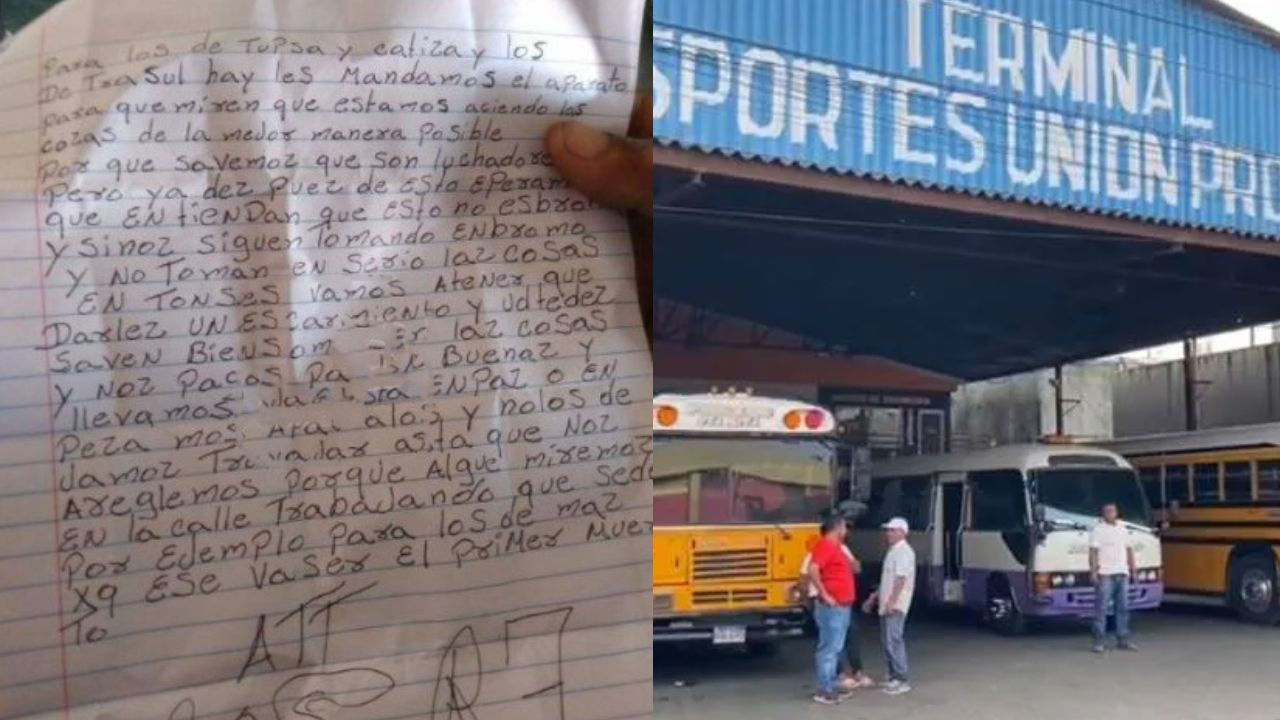 Para los de TUPSA y catiza y los
De TraSul hay les Mandamos el aparato
Para que miren que estamos aciendo las
cozas de la mejor manera Posible
Por que savemoz que son luchadore
Pero ya dez Puez de esto EPeram
que ENtieNDaN que esto no esbro
y sinoz siguen Tomando ENbromo
y No Toman en Serio laz cosas
EN TONSES vamos Atener que
Darlez UN EScarmiento y udtedez
Saven BienSom laz cosas
y Noz Pacas Pa Buenaz y
llevamos ENPaz o EN
Peza mos y nolos de
Jamoz asta que Noz
Areglemos Porque Algue miremoz
EN la calle TrabaJando que sed
Por EJemPlo Para los de maz
xq ESe vaser El PriMer Muer
To
ATT
TERMINAL
SPORTES UNION PRO